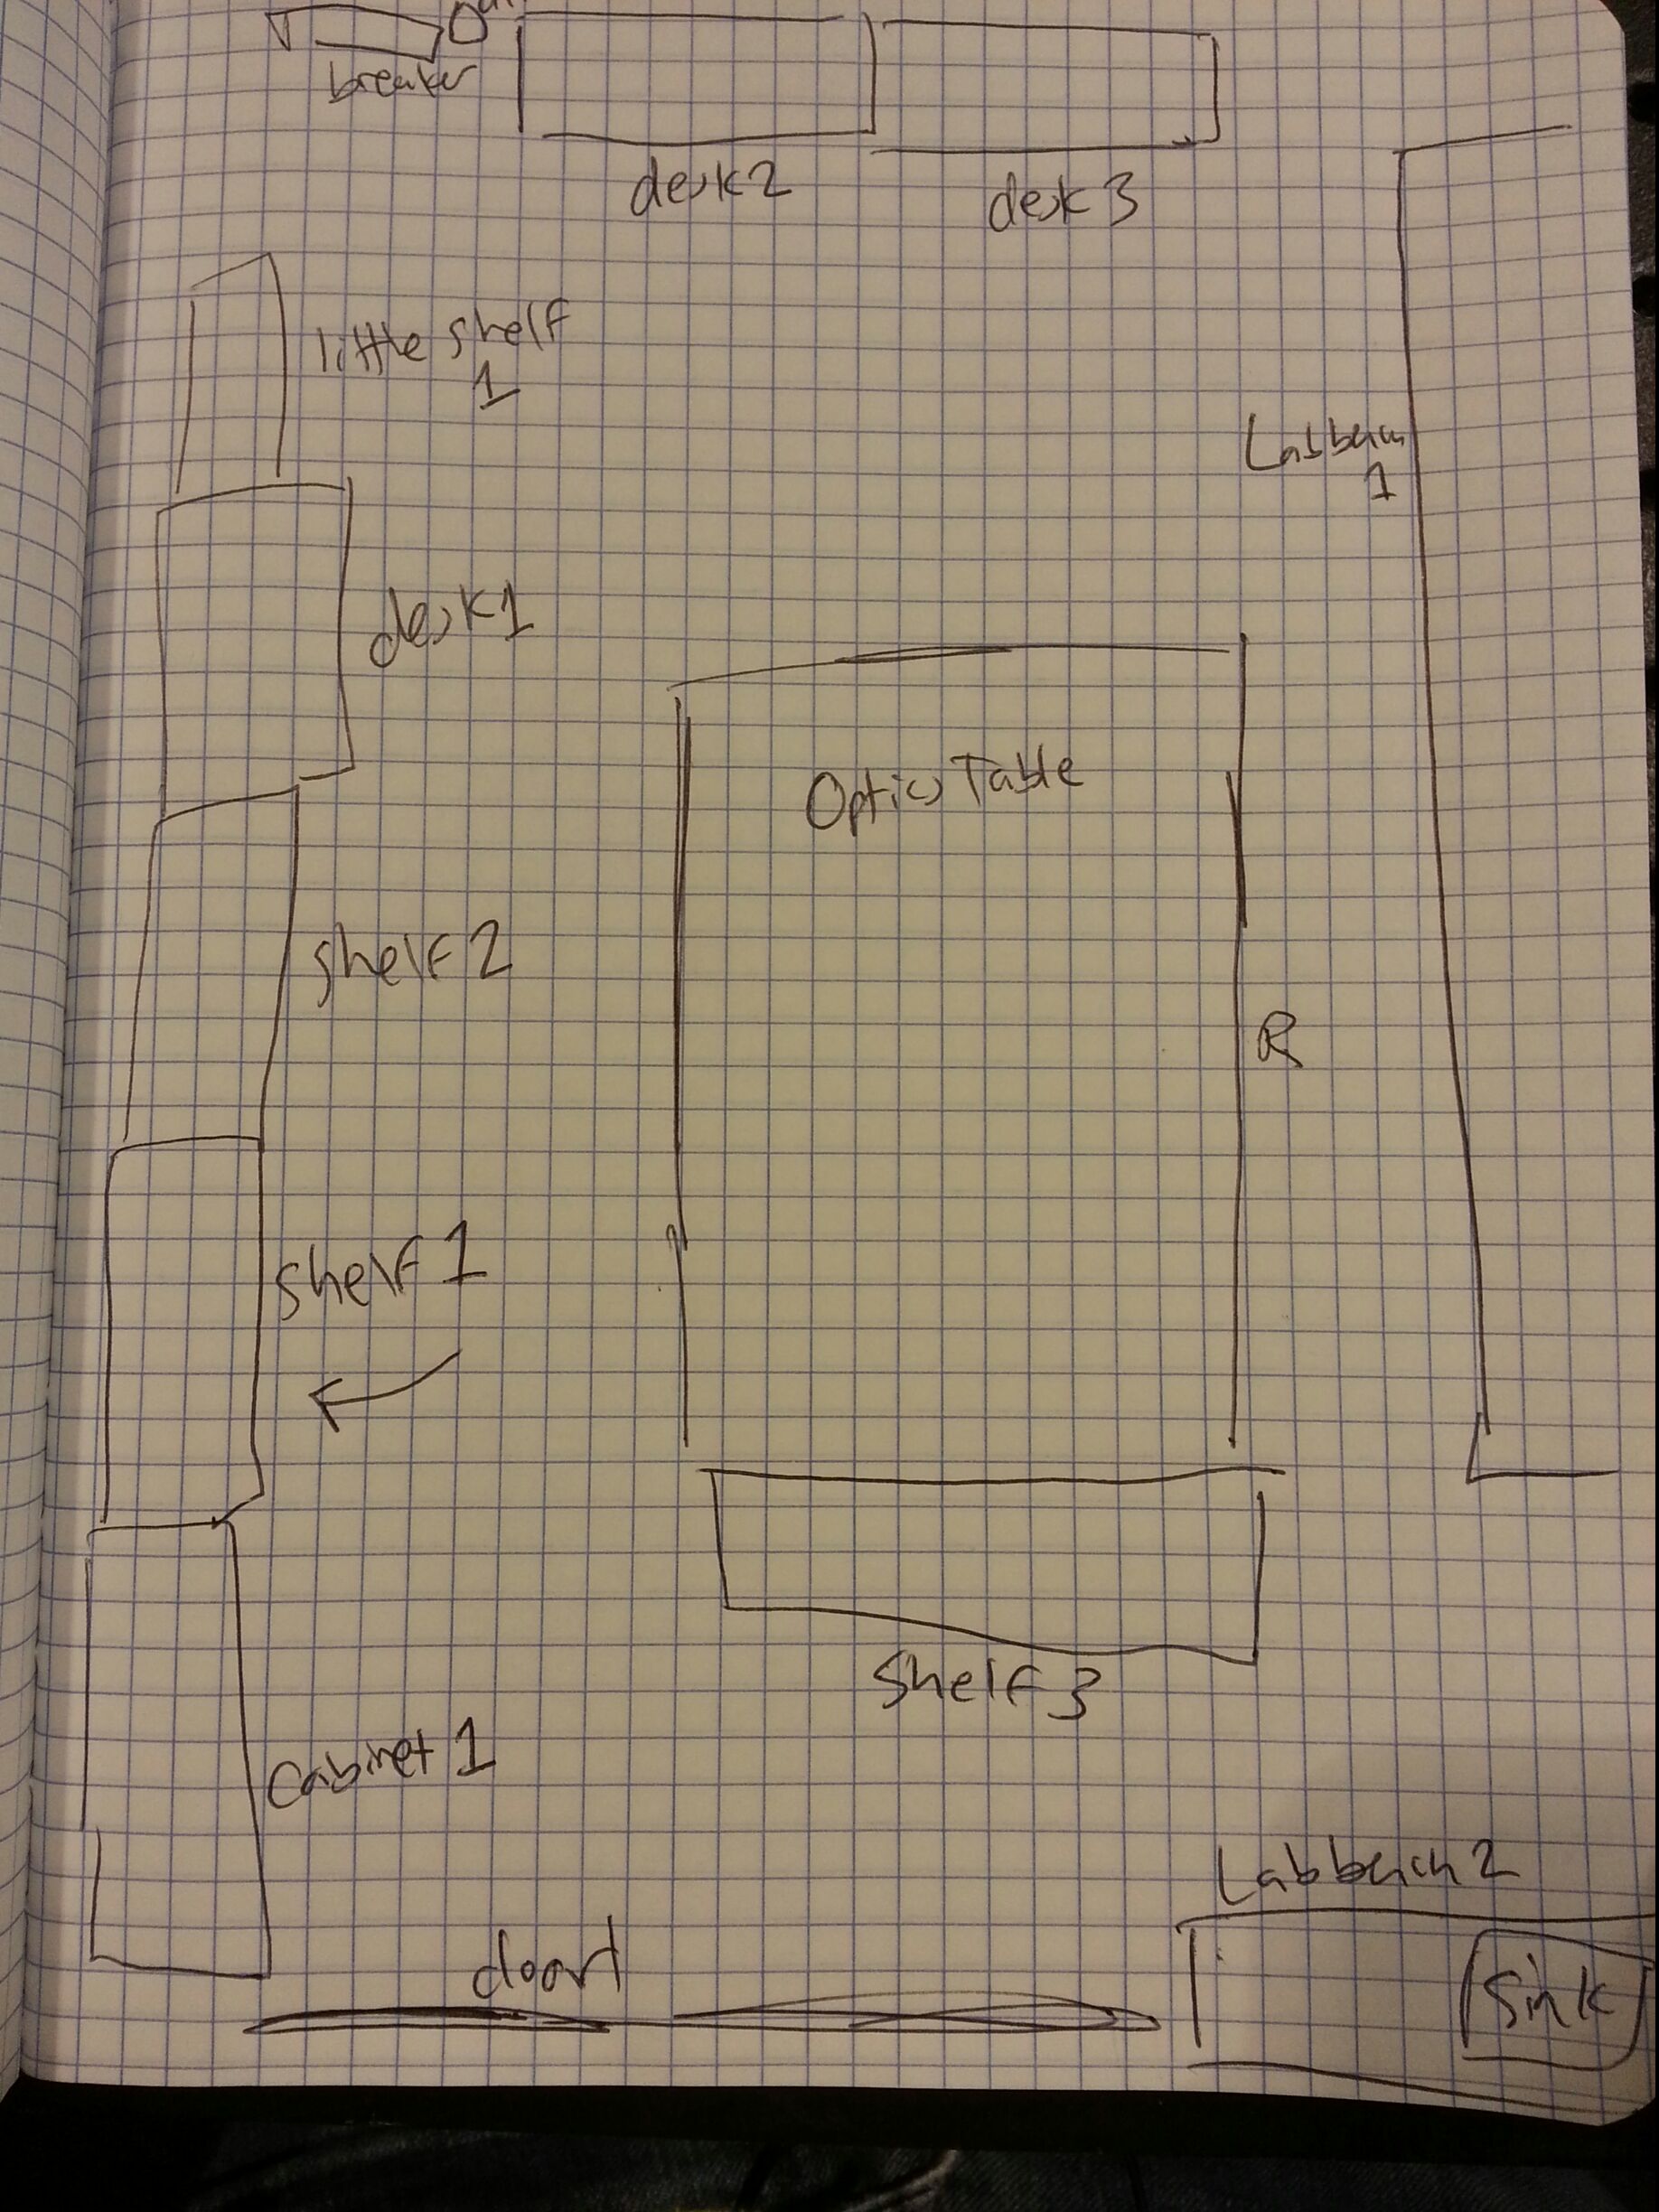 breaker
desk 2
desk 3
little shelf
1
Labbench
1
desk 1
Optics Table
shelf 2
R
shelf 1
shelf 3
Cabinet 1
Labbench 2
door
Sink